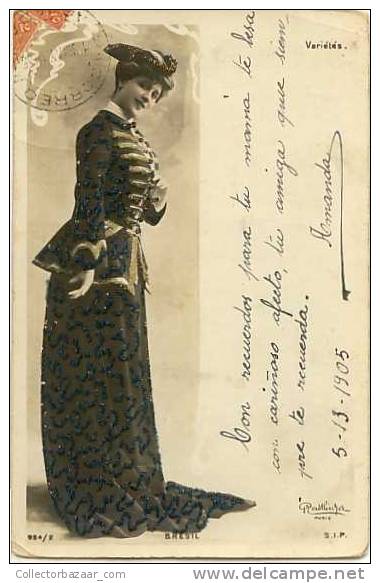 Variétés.
CORREO
Con recuerdos para tu mamá te besa
con cariñoso afecto, tu amiga que siem-
pre te recuerda.
Amanda
5-13-1905
Reutlinger
PARIS
984/2
BRÉSIL
S.I.P.
© Collectorbazar______com
http://www.delcampe.net